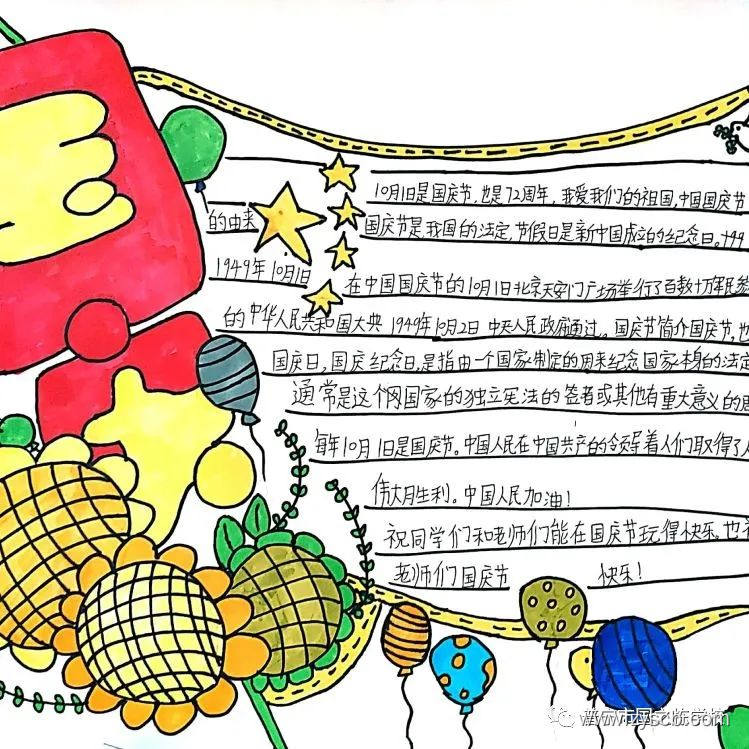 10月1日是国庆节,也是72周年,我爱我们的祖国,中国国庆节
的由来 国庆节是我国的法定,节假日是新中国成立的纪念日。
1949年10月1日 在中国国庆节的10月1日北京天安门广场举行了百数十万军民参
的中华人民共和国大典 1949年10月2日 中天人民政府通过。国庆节简介国庆节,也
国庆日,国庆纪念日,是指由一个国家制定的周来纪念国家本身的法定
通常是这个网国家的独立宪法的签者或其他有重大意义的周
每年10月1日是国庆节。中国人民在中国共产的令领导着人们取得了
伟大月生利。中国人民加油!
祝同学们和老师们能在国庆节玩得快乐。也祝
老师们国庆节 快乐!